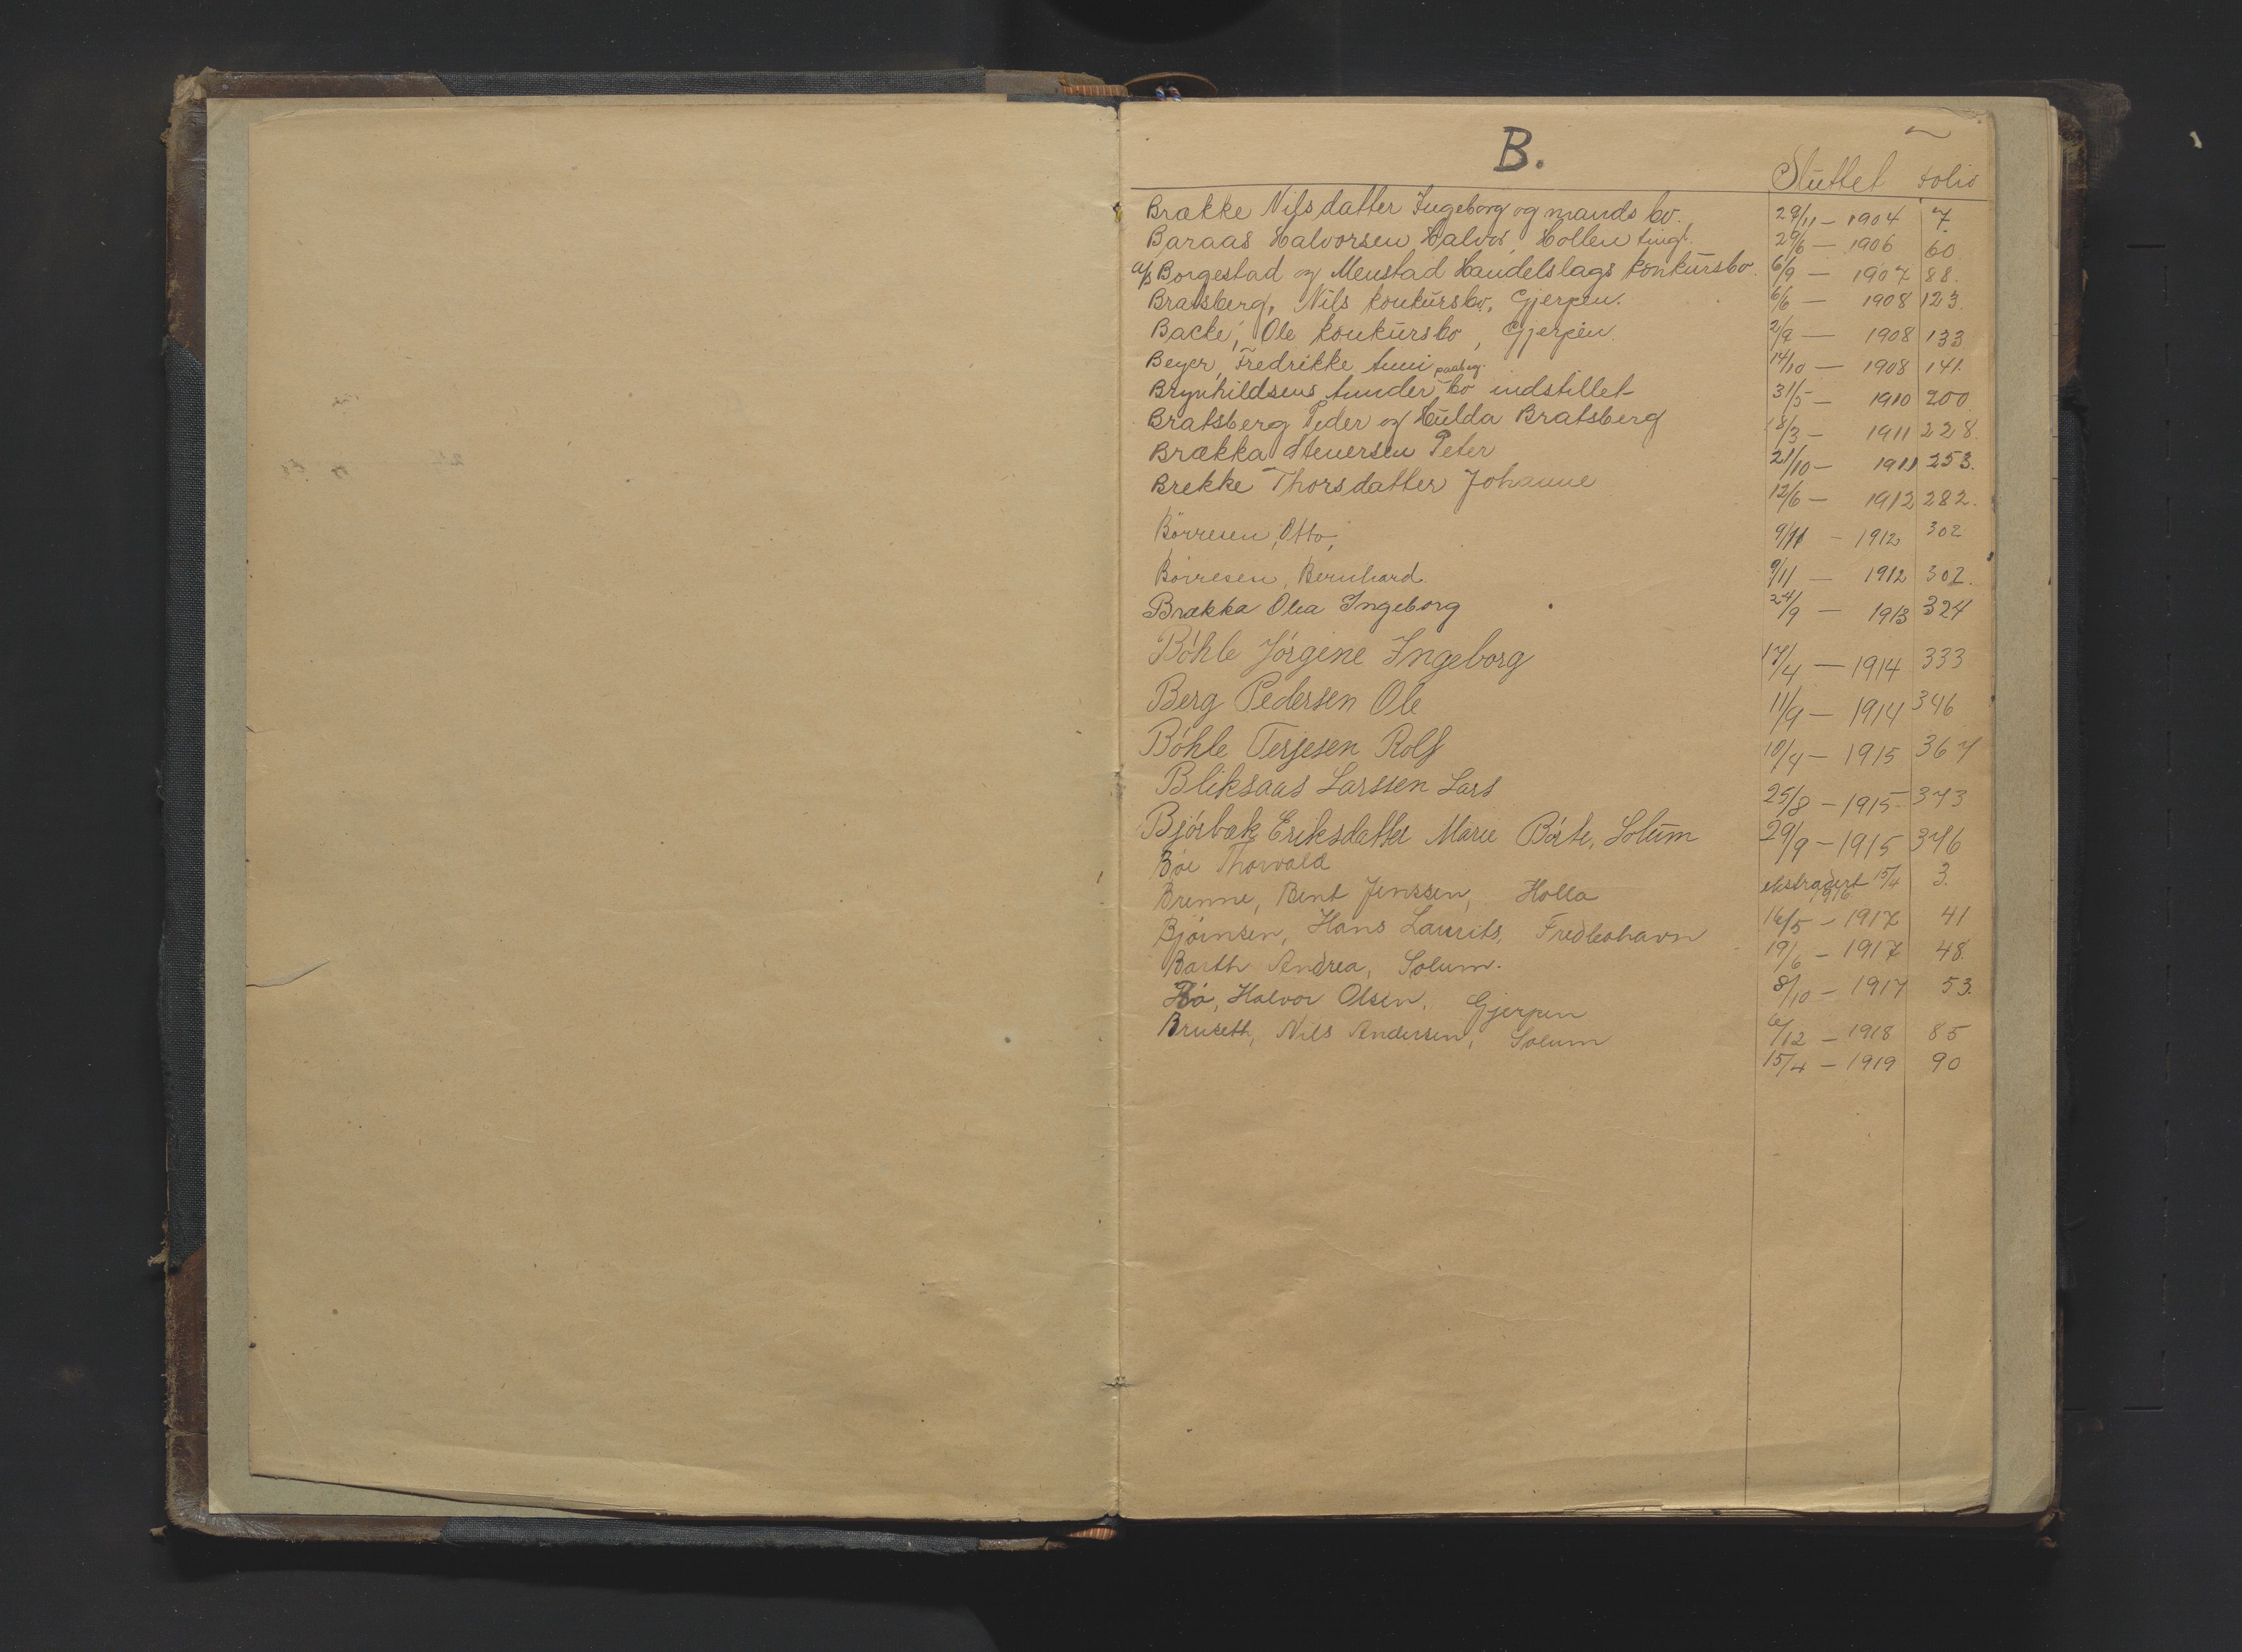 B.
Sluttet folio
Brække Nilsdatter Ingeborg og mands bo. 29/11 – 1904 7.
Baraas Halvorsen Halvor, Hollen tingl. 29/6 – 1906 60
a/s Borgestad og Menstad Handelslags konkursbo. 6/9 – 1907 88.
Bratsberg, Nils konkursbo, Gjerpen. 6/6 – 1908 123.
Backe, Ole konkursbo, Gjerpen. 2/9 – 1908 133
Beyer, Fredrikke 14/10 – 1908 141.
Brynhildsens bo indstillet 31/5 – 1910 200
Bratsberg Peder og Hulda Bratsberg 18/3 – 1911 228.
Brækka Stenersen Peter 21/10 – 1911 253.
Brekke Thorsdatter Johanne 12/6 – 1912 282.
Börresen, Otto, 9/11 – 1912 302
Börresen, Bernhard 9/11 – 1912 302.
Brækka Olea Ingeborg 24/9 – 1913 324
Bóhle Jórgine Ingeborg 17/4 – 1914 333
Berg Pedersen Ole 11/9 – 1914 346
Bóhle Terjesen Rolf 10/4 – 1915 367
Bliksaas Larssen Lars 25/8 – 1915 373
Bjórbæk Eriksdatter Marie Bórte, Solum 29/9 – 1915 376
Bóe Thorvald ekstradert 15/4 1916 3.
Brenne, Bent Jenssen, Holla 16/5 – 1917 41
Bjórnsen, Hans Laurits, 19/6 – 1917 48.
Barth Andrea, Solum. 8/10 – 1917 53.
Bó, Halvor Olsen, Gjerpen 6/12 – 1918 85
Bruseth, Nils Andersen, Solum 15/4 – 1919 90